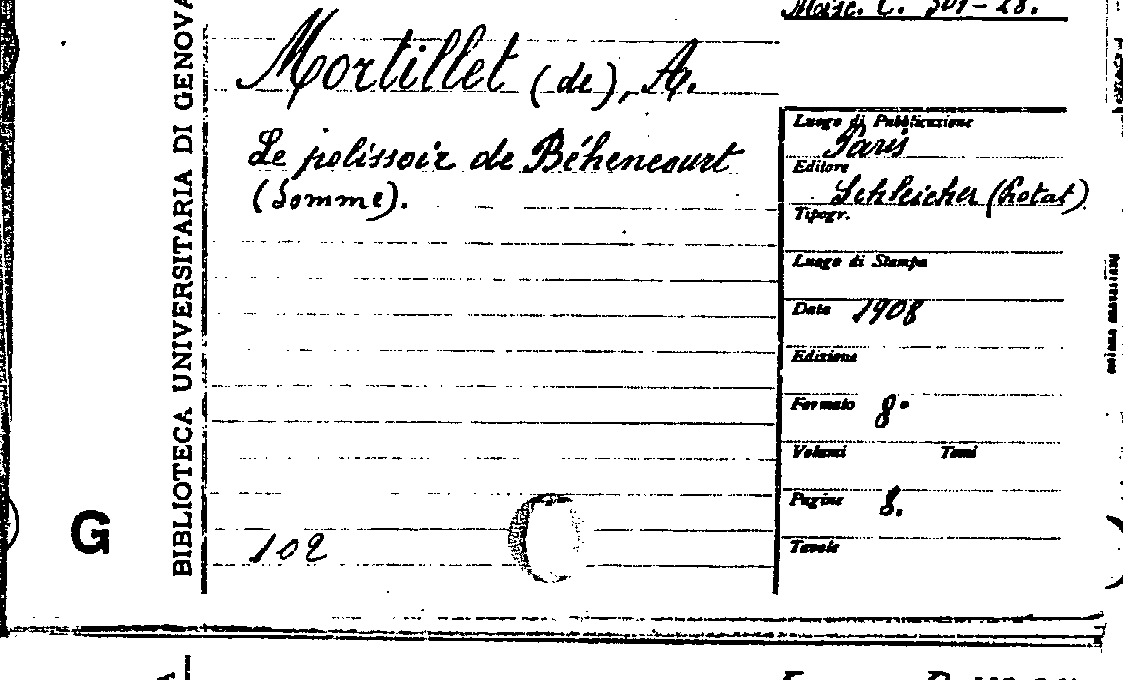 Misc. C. 301-28.
BIBLIOTECA UNIVERSITARIA DI GENOVA
Mortillet (de), A.
Le polissoir de Béhencourt
(Somme).
102
G
Luogo di Pubblicazione
Paris
Editore
Schleicher (Rotat)
Tipogr.
Luogo di Stampa
Data 1908
Edizione
Formato 8°
Volumi Tomi
Pagine 8.
Tavole